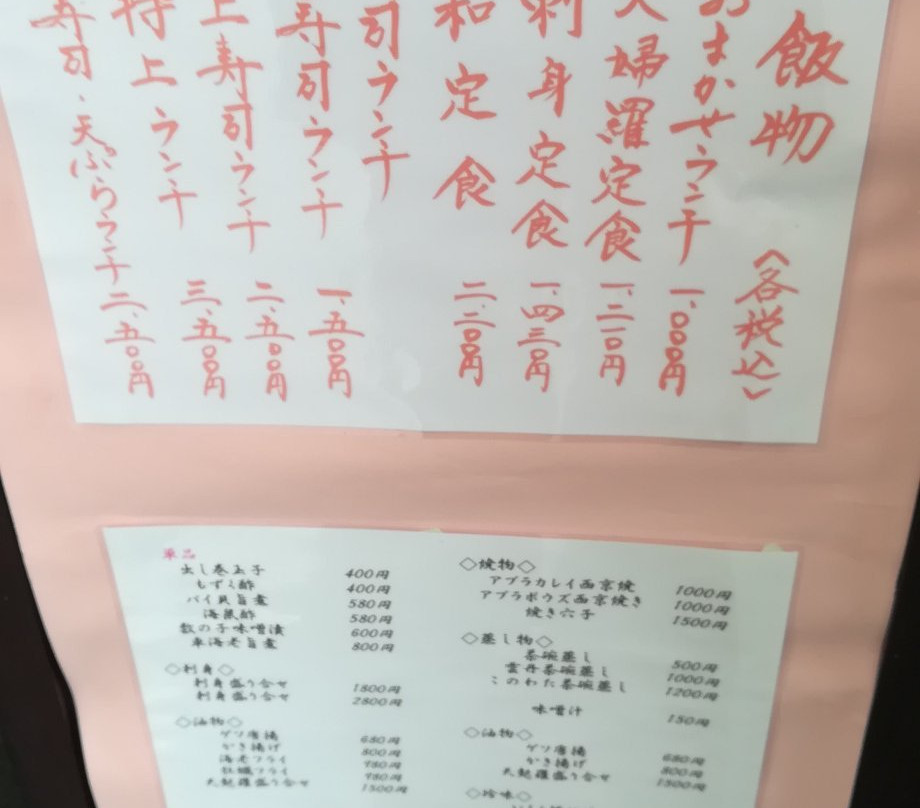 飯物
〈各税込〉
おまかせランチ 一、〇〇〇円
天婦羅定食 一、二一〇円
刺身定食 一、四三〇円
和定食 二、二〇〇円
寿司ランチ
寿司ランチ 一、五〇〇円
上寿司ランチ 二、五〇〇円
特上ランチ 三、五〇〇円
寿司・天ぷらランチ 二、五〇〇円
単品
出し巻玉子 400円
もずく酢 400円
バイ貝旨煮 580円
海鼠酢 580円
数の子味噌漬 600円
車海老旨煮 800円
◇刺身◇
刺身盛り合せ 1800円
刺身盛り合せ 2800円
◇油物◇
ゲソ唐揚 680円
かき揚げ 800円
海老フライ 980円
牡蠣フライ 980円
天麩羅盛り合せ 1500円
◇焼物◇
アブラカレイ西京焼 1000円
アブラボウズ西京焼き 1000円
焼き穴子 1500円
◇蒸し物◇
茶碗蒸し 500円
雲丹茶碗蒸し 1000円
このわた茶碗蒸し 1200円
味噌汁 150円
◇油物◇
ゲソ唐揚 680円
かき揚げ 800円
天麩羅盛り合せ 1500円
◇珍味◇